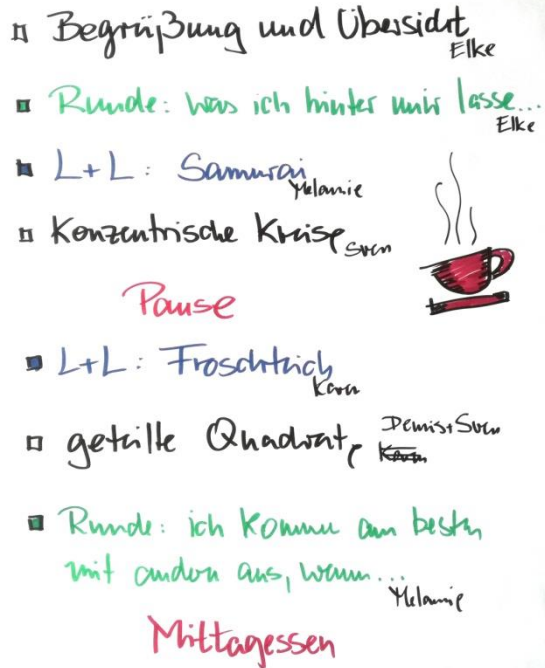 Begrüßung und Übersicht
Elke
Runde: was ich hinter mir lasse...
Elke
L+L: Samurai
Melanie
Konzentrische Kreise
Sven
Pause
L+L: Froschteich
geteilte Quadrate
Denis+Sven
Runde: ich komme am besten
mit andern aus, wenn...
Melanie
Mittagessen